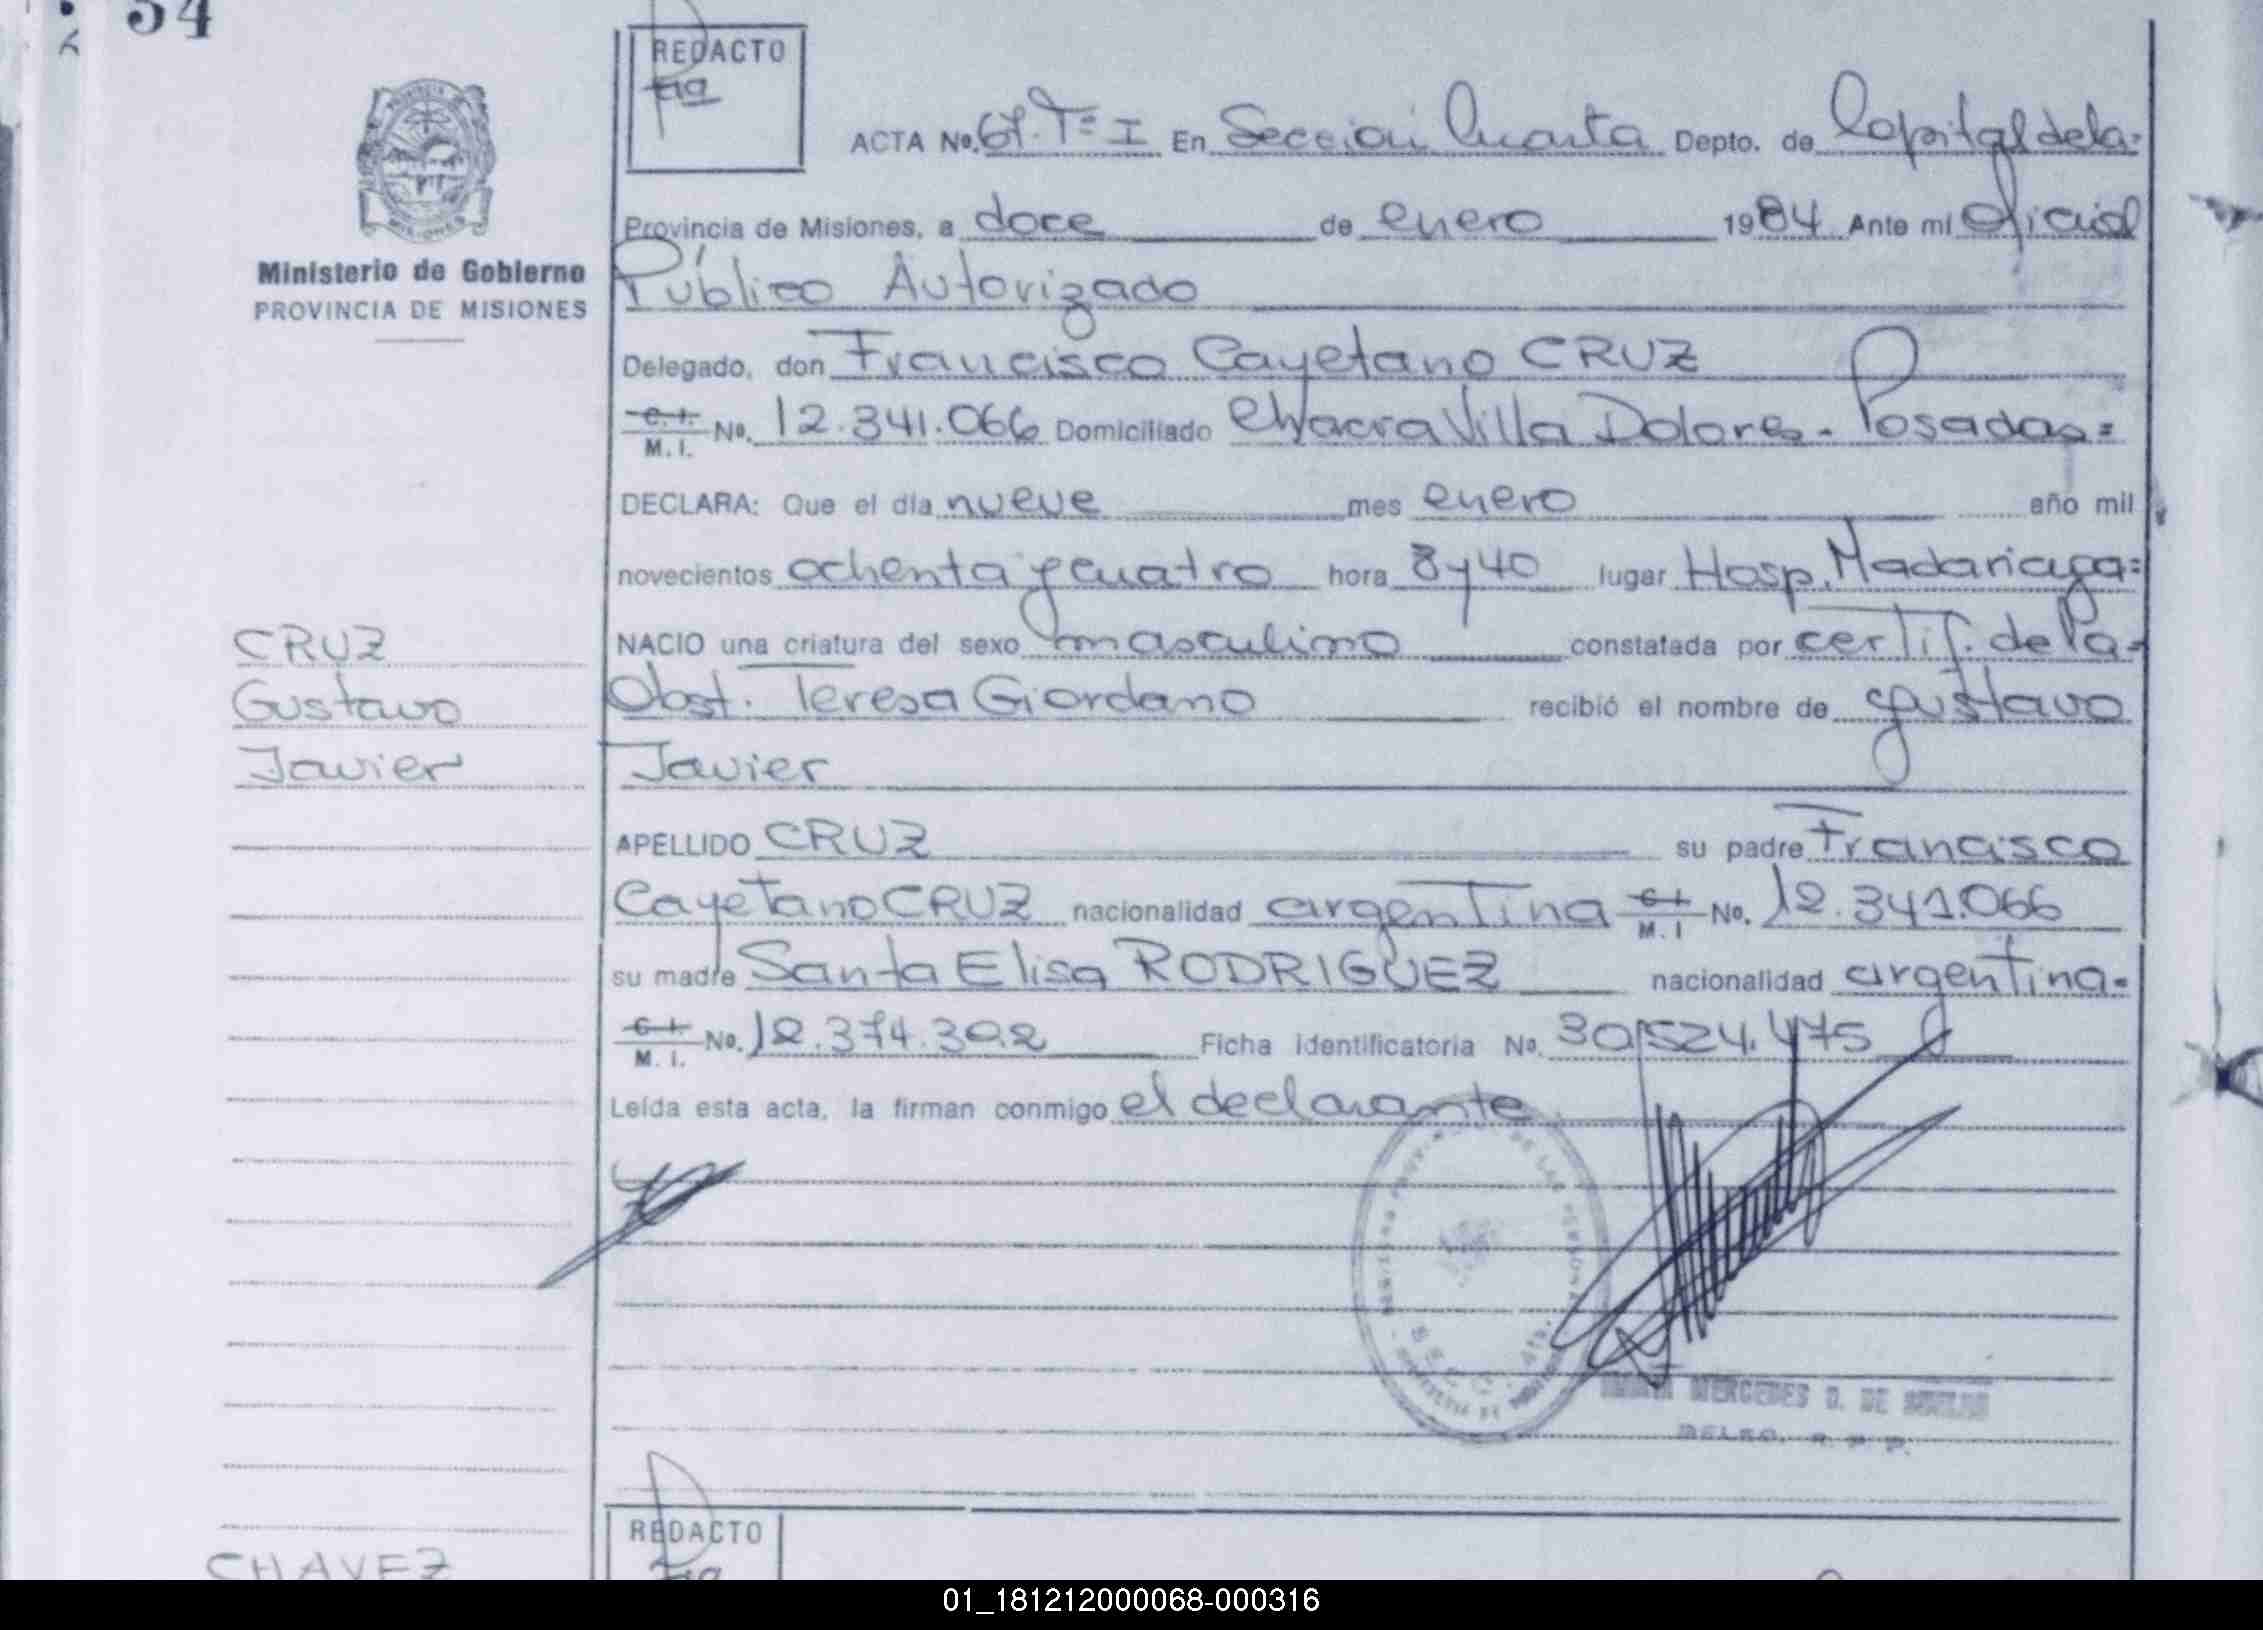 54
REDACTO
ACTA No. 67. Tº I En Sección Cuarta Depto. de Capital de la=
Provincia de Misiones, a doce de enero 1984 Ante mi Oficial
Público Autorizado
Ministerio de Gobierno
PROVINCIA DE MISIONES
Delegado, don Francisco Cayetano CRUZ
C. I. M. I. No. 12.341.066 Domiciliado Chacra Villa Dolores - Posadas=
DECLARA: Que el día nueve mes enero año mil
novecientos ochenta y cuatro hora 8 y 40 lugar Hosp. Madariaga=
CRUZ
Gustavo
Javier
NACIO una criatura del sexo masculino constatada por certif. de la-
Obst. Teresa Giordano recibió el nombre de Gustavo
Javier
APELLIDO CRUZ su padre Francisco
Cayetano CRUZ nacionalidad argentina C. I. M. I No. 12.341.066
su madre Santa Elisa RODRIGUEZ nacionalidad argentina-
C. I. M. I. No. 12.374.302 Ficha identificatoria No. 30.524.475
Leída esta acta, la firman conmigo el declarante
MERCEDES D. DE
REDACTO
CHAVEZ
01_181212000068-000316